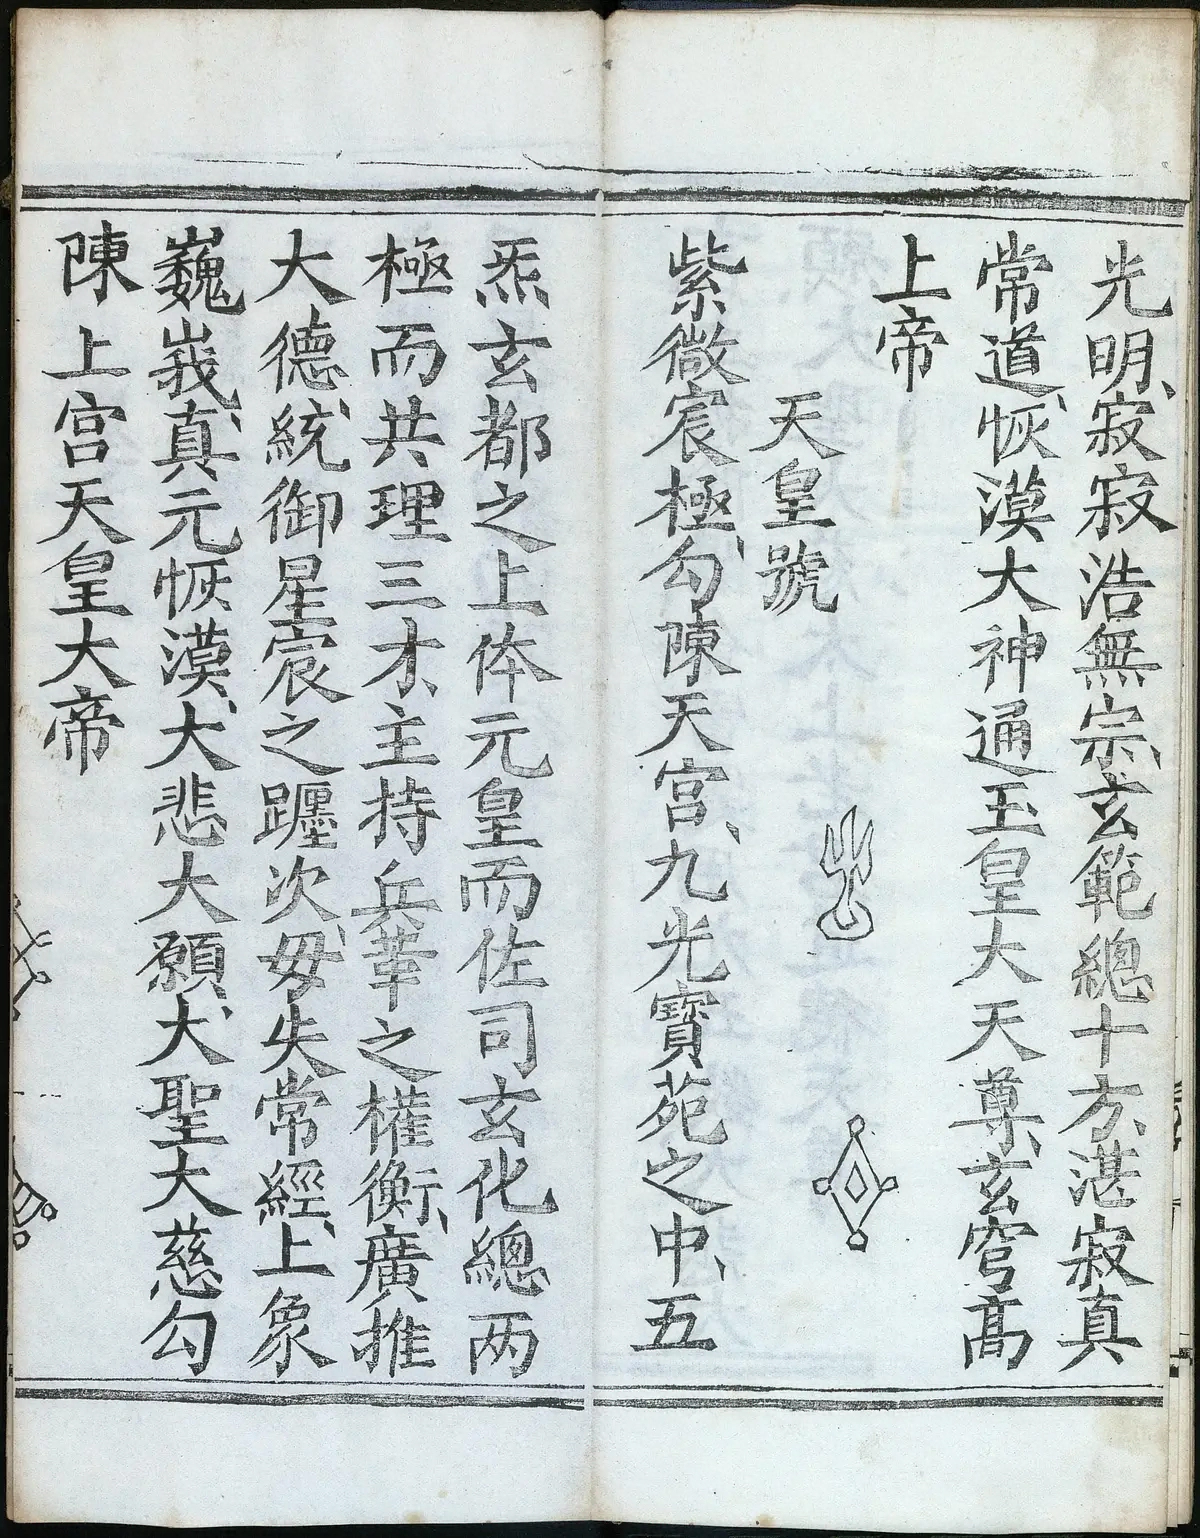 光明、寂寂浩無宗、玄範總十方、湛寂真
常道、恢漠大神通玉皇大天尊、玄穹高
上帝
天皇號
紫微宸極、勾陳天宮、九光寶苑之中、五
炁玄都之上体元皇而佐司玄化總两
極而共理三才、主持兵革之權衡、廣推
大德、統御星宸之躔次、毋失常經、上象
巍峩、真元恢漠、大悲大願、大聖大慈勾
陳上宮天皇大帝